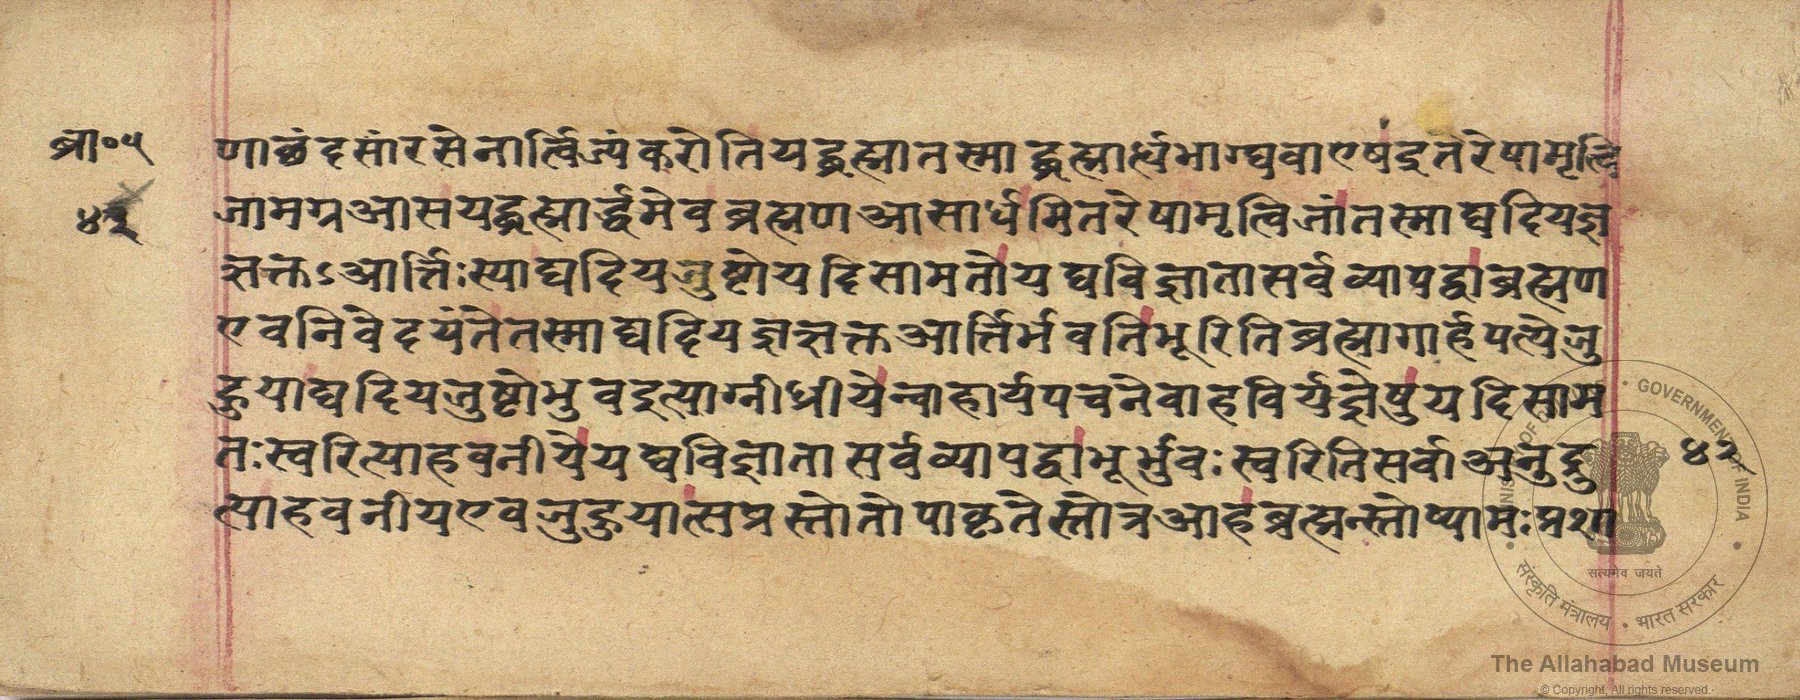 ब्रा०५
णाछंदसांरसेनार्त्विज्यंकरोतियद्ब्रह्मातस्माद्ब्रह्मार्त्ध्यभाग्घवाएषइतरेषामृत्वि
४२
जामग्रआसयद्ब्रह्मार्द्धमेवब्रह्मणआसार्धमितरेषामृत्विजांतस्माद्यदियज्ञ
ऋक्तऽआर्त्तिःस्याद्यदियजुष्टोयदिसामतोयद्यविज्ञातासर्वव्यापद्वाब्रह्मण
एवनिवेदयंतेतस्माद्यदियज्ञऋक्तआर्त्तिर्भवतिभूरितिब्रह्मागार्हपत्येजु
हुयाद्यदियजुष्टोभुवइत्याग्नीध्रीयेन्वाहार्यपचनेवाहविर्यज्ञेषुयदिसाम
तःस्वरित्याहवनीयेयद्यविज्ञातासर्वव्यापद्वाभूर्भुवःस्वरितिसर्वाअनुद्रु
४२
त्याहवनीयएवजुहुयात्सप्रस्तोतोपाकृतेस्तोत्रआहब्रह्मन्स्तोष्यामःप्रशा
GOVERNMENT OF INDIA
सत्यमेव जयते
संस्कृति मंत्रालय • भारत सरकार
The Allahabad Museum
© Copyright, All rights reserved.